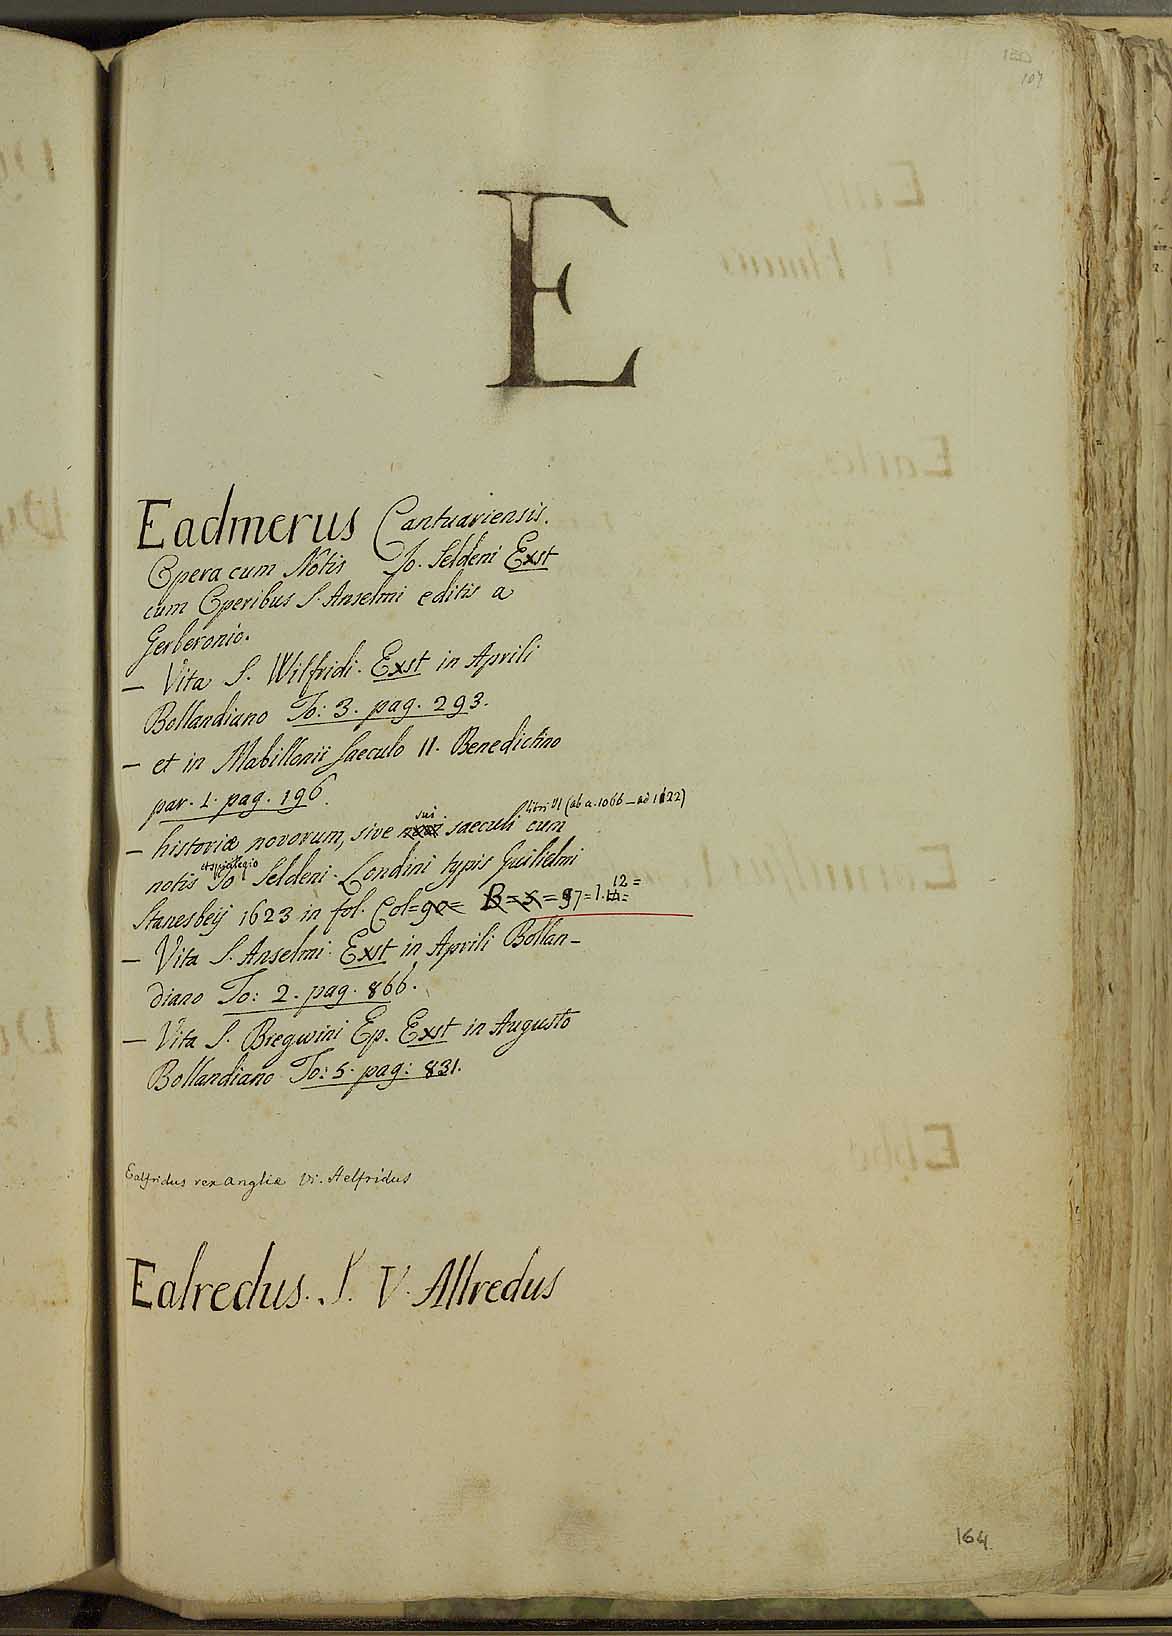 107
E
Eadmerus Cantuariensis.
Opera cum Notis Jo. Seldeni Exst
cum Operibus S. Anselmi editis a
Gerberonio.
– Vita S. Wilfridi. Exst in Aprili
Bollandiano To: 3. pag. 293.
– et in Mabillonii Saeculo II. Benedictino
par. 1. pag. 196.
sui libri VI (ab a. 1066 – ad 1122)
– historiæ novorum, sive saeculi cum
et spicilegio
notis Jo Seldeni. Londini typis Guilielmi
12 =
Stanesbeij 1623 in fol. Col= 90= B= x= 97= 1.
– Vita S. Anselmi. Exst in Aprili Bollan-
diano To: 2. pag. 866.
– Vita S. Bregwini Ep. Exst in Augusto
Bollandiano To: 5. pag: 831.
Ealfridus rex angliæ Vi. Aelfridus
Ealredus. S. V. Allredus
164